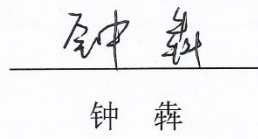 钟犇
钟 犇